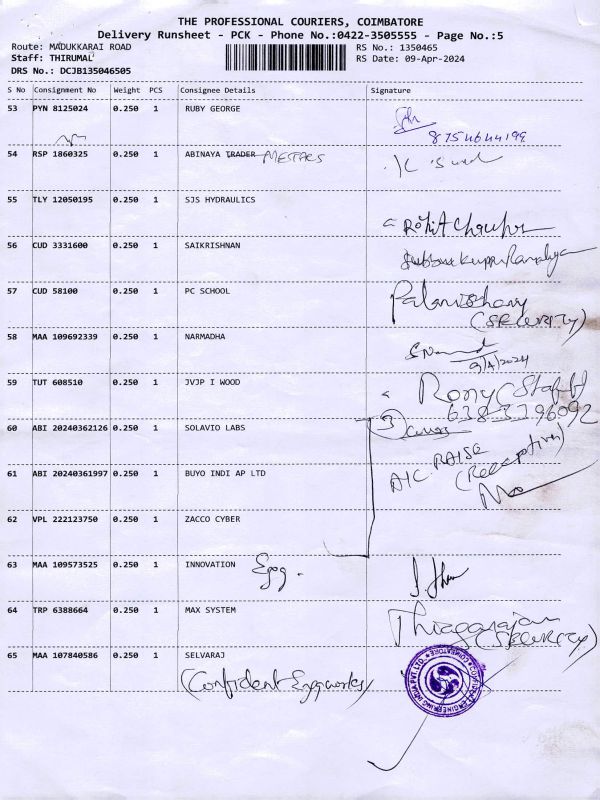 THE PROFESSIONAL COURIERS, COIMBATORE
Delivery Runsheet - PCK - Phone No.:0422-3505555 - Page No.:5
Route: MADUKKARAI ROAD RS No.: 1350465
Staff: THIRUMAL RS Date: 09-Apr-2024
DRS No.: DCJB135046505
S No Consignment No Weight PCS Consignee Details Signature
53 PYN 8125024 0.250 1 RUBY GEORGE
8754644199
54 RSP 1860325 0.250 1 ABINAYA TRADER METALS
55 TLY 12050195 0.250 1 SJS HYDRAULICS
Rohit
56 CUD 3331600 0.250 1 SAIKRISHNAN
57 CUD 58100 0.250 1 PC SCHOOL
(SECURITY)
58 MAA 109692339 0.250 1 NARMADHA
9/4/2024
59 TUT 608510 0.250 1 JVJP I WOOD
Rony (Staff)
6383396092
60 ABI 20240362126 0.250 1 SOLAVIO LABS
3
61 ABI 20240361997 0.250 1 BUYO INDI AP LTD
AIC RAISE
(Reception)
62 VPL 222123750 0.250 1 ZACCO CYBER
63 MAA 109573525 0.250 1 INNOVATION Engg.
64 TRP 6388664 0.250 1 MAX SYSTEM
Thiagarajan
(SECURITY)
65 MAA 107840586 0.250 1 SELVARAJ
(Confident Enggworks)